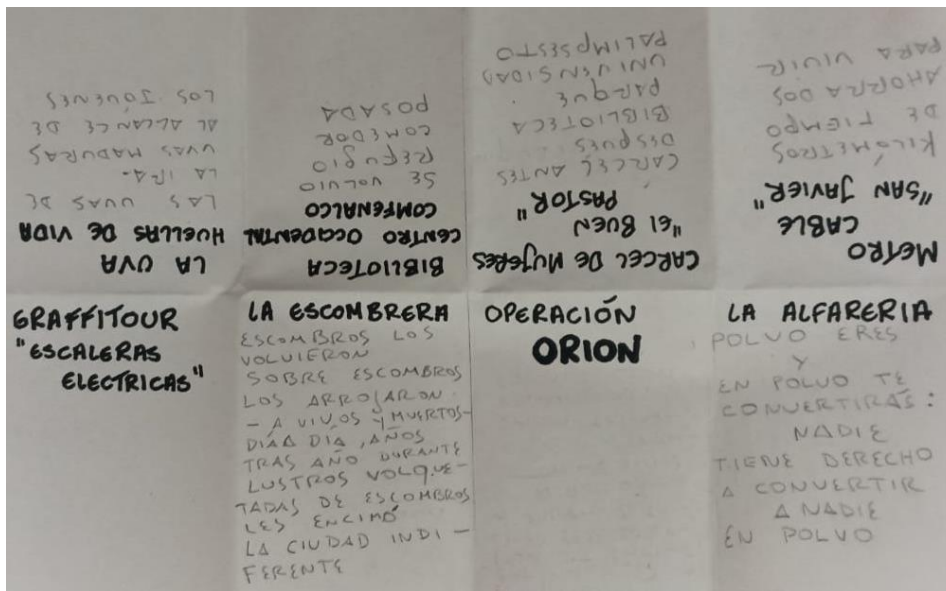 METRO
CABLE
"SAN JAVIER"
KILÓMETROS
DE TIEMPO
AHORRADOS
PARA VIVIR
CARCEL DE MUJERES
"El BUEN
PASTOR"
CARCEL ANTES
DESPUES
BIBLIOTECA
PARQUE
UNIVERSIDAD
PALIMPSESTO
BIBLIOTECA
CENTRO OCCIDENTAL
COMFENALCO
SE VOLVIO
REFUGIO
COMEDOR
POSADA
LA UVA
HUELLAS DE VIDA
LAS UVAS DE
LA IRA.
UVAS MADURAS
AL ALCANCE DE
LOS JÓVENES
GRAFFITOUR
"ESCALERAS
ELECTRICAS"
LA ESCOMBRERA
ESCOMBROS LOS
VOLVIERON
SOBRE ESCOMBROS
LOS ARROJARON
- A VIVOS Y MUERTOS-
DIA A DIA, AÑOS
TRAS AÑO DURANTE
LUSTROS VOLQUE-
TADAS DE ESCOMBROS
LES ENCIMÓ
LA CIUDAD INDI-
FERENTE
OPERACIÓN
ORION
LA ALFARERIA
POLVO ERES
Y
EN POLVO TE
CONVERTIRÁS:
NADIE
TIENE DERECHO
A CONVERTIR
A NADIE
EN POLVO